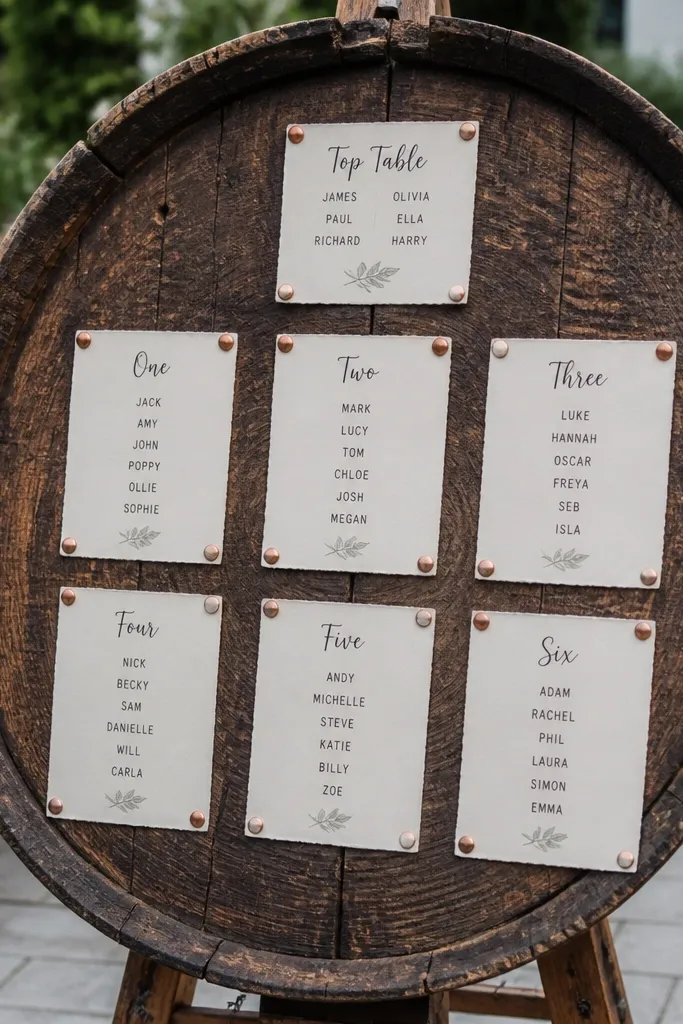 Top Table
JAMES OLIVIA
PAUL ELLA
RICHARD HARRY
One
JACK
AMY
JOHN
POPPY
OLLIE
SOPHIE
Two
MARK
LUCY
TOM
CHLOE
JOSH
MEGAN
Three
LUKE
HANNAH
OSCAR
FREYA
SEB
ISLA
Four
NICK
BECKY
SAM
DANIELLE
WILL
CARLA
Five
ANDY
MICHELLE
STEVE
KATIE
BILLY
ZOE
Six
ADAM
RACHEL
PHIL
LAURA
SIMON
EMMA